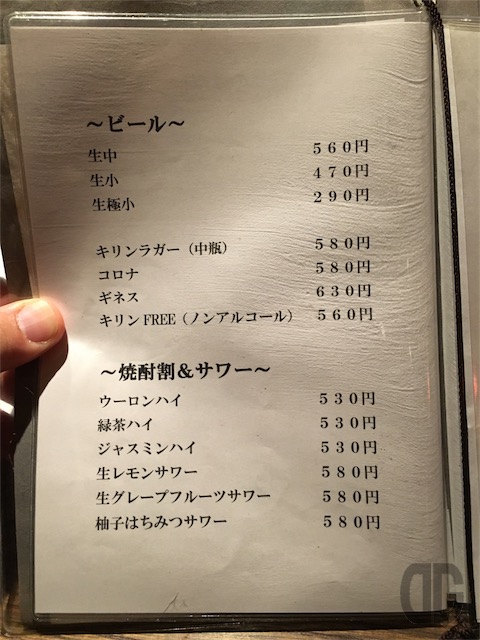 ～ビール～
生中 ５６０円
生小 ４７０円
生極小 ２９０円
キリンラガー（中瓶） ５８０円
コロナ ５８０円
ギネス ６３０円
キリン FREE（ノンアルコール） ５６０円
～焼酎割＆サワー～
ウーロンハイ ５３０円
緑茶ハイ ５３０円
ジャスミンハイ ５３０円
生レモンサワー ５８０円
生グレープフルーツサワー ５８０円
柚子はちみつサワー ５８０円